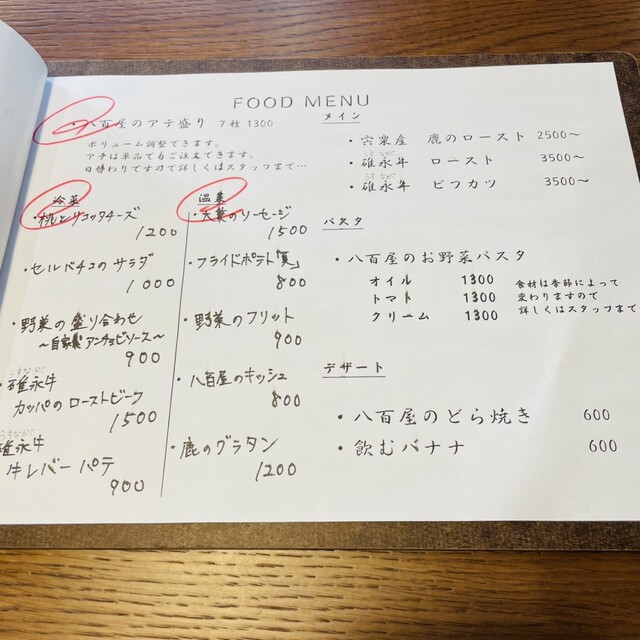 FOOD MENU
・八百屋のアテ盛り 7種 1300
ボリューム調整できます。
アテは単品でもご注文できます。
日替わりですので詳しくはスタッフまで…
冷菜
・桃とリコッタチーズ
1200
・セルバチコのサラダ
1000
・野菜の盛り合わせ
〜自家製アンチョビソース〜
900
・碓永牛
カッパのローストビーフ
1500
碓永牛
牛レバーパテ
900
温菜
・大葉のソーセージ
1500
・フライドポテト「実」
800
・野菜のフリット
900
・八百屋のキッシュ
800
・鹿のグラタン
1200
メイン
・宍粟産 鹿のロースト 2500〜
うすなが
・碓永牛 ロースト 3500〜
うすなが
・碓永牛 ビフカツ 3500〜
パスタ
・八百屋のお野菜パスタ
オイル 1300
トマト 1300
クリーム 1300
食材は季節によって
変わりますので
詳しくはスタッフまで
デザート
・八百屋のどら焼き 600
・飲むバナナ 600